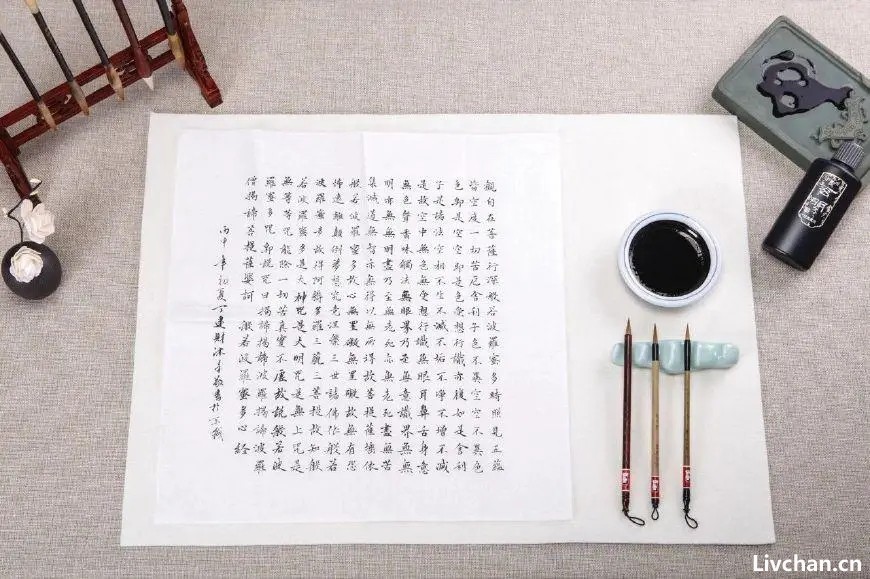 觀自在菩薩行深般若波羅蜜多時照見五蘊
皆空度一切苦厄舍利子色不異空空不異色
色即是空空即是色受想行識亦復如是舍利
子是諸法空相不生不滅不垢不淨不增不減
是故空中無色無受想行識無眼耳鼻舌身意
無色聲香味觸法無眼界乃至無意識界無無
明亦無無明盡乃至無老死亦無老死盡無苦
集滅道無智亦無得以無所得故菩提薩埵依
般若波羅蜜多故心無罣礙無罣礙故無有恐
怖遠離顛倒夢想究竟涅槃三世諸佛依般若
波羅蜜多故得阿耨多羅三藐三菩提故知般
若波羅蜜多是大神咒是大明咒是無上咒是
無等等咒能除一切苦真實不虛故說般若波
羅蜜多咒即說咒曰揭諦揭諦波羅揭諦波羅
僧揭諦菩提薩婆訶 般若波羅蜜多心經
丙申年初夏丁建財沐手敬書於京
Livchan.cn